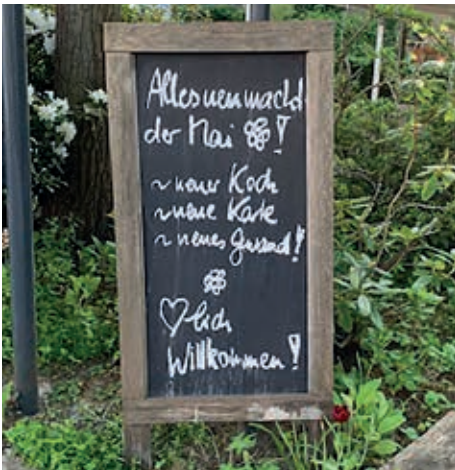 Alles neu macht
der Mai !
~ neuer Koch
~ neue Karte
~ neues Gewand!
♡lich
Willkommen!